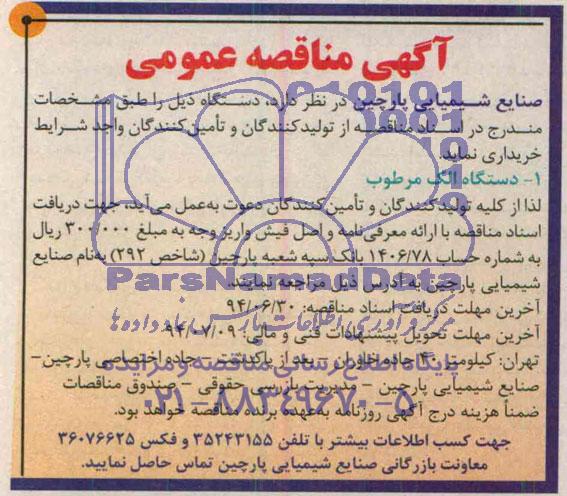 آگهی مناقصه عمومی
صنایع شیمیایی پارچین در نظر دارد، دستگاه ذیل را طبق مشخصات
مندرج در اسناد مناقصه از تولیدکنندگان و تأمین‌کنندگان واجد شرایط
خریداری نماید.
۱- دستگاه الک مرطوب
لذا از کلیه تولیدکنندگان و تأمین‌کنندگان دعوت به‌عمل می‌آید، جهت دریافت
اسناد مناقصه با ارائه معرفی‌نامه و اصل فیش واریز وجه به مبلغ ۳۰۰/۰۰۰ ریال
به شماره حساب ۱۴۰۶/۷۸ بانک سپه شعبه پارچین (شاخص ۲۹۲) به‌نام صنایع
شیمیایی پارچین به آدرس ذیل مراجعه نمایند.
ParsNamadData
آخرین مهلت دریافت اسناد مناقصه: ۹۴/۰۶/۳۰
آخرین مهلت تحویل پیشنهادات فنی و مالی: ۹۴/۰۷/۰۹
تهران: کیلومتر ۴۰ جاده خاوران – بعد از پاکدشت – جاده اختصاصی پارچین–
پایگاه اطلاع رسانی مناقصه و مزایده
صنایع شیمیایی پارچین – مدیریت بازرسی حقوقی – صندوق مناقصات
۰۲۱-۸۸۳۴۹۶۷۰-۵
ضمناً هزینه درج آگهی روزنامه به‌عهده برنده مناقصه خواهد بود.
جهت کسب اطلاعات بیشتر با تلفن ۳۵۲۴۳۱۵۵ و فکس ۳۶۰۷۶۶۲۵
معاونت بازرگانی صنایع شیمیایی پارچین تماس حاصل نمایید.